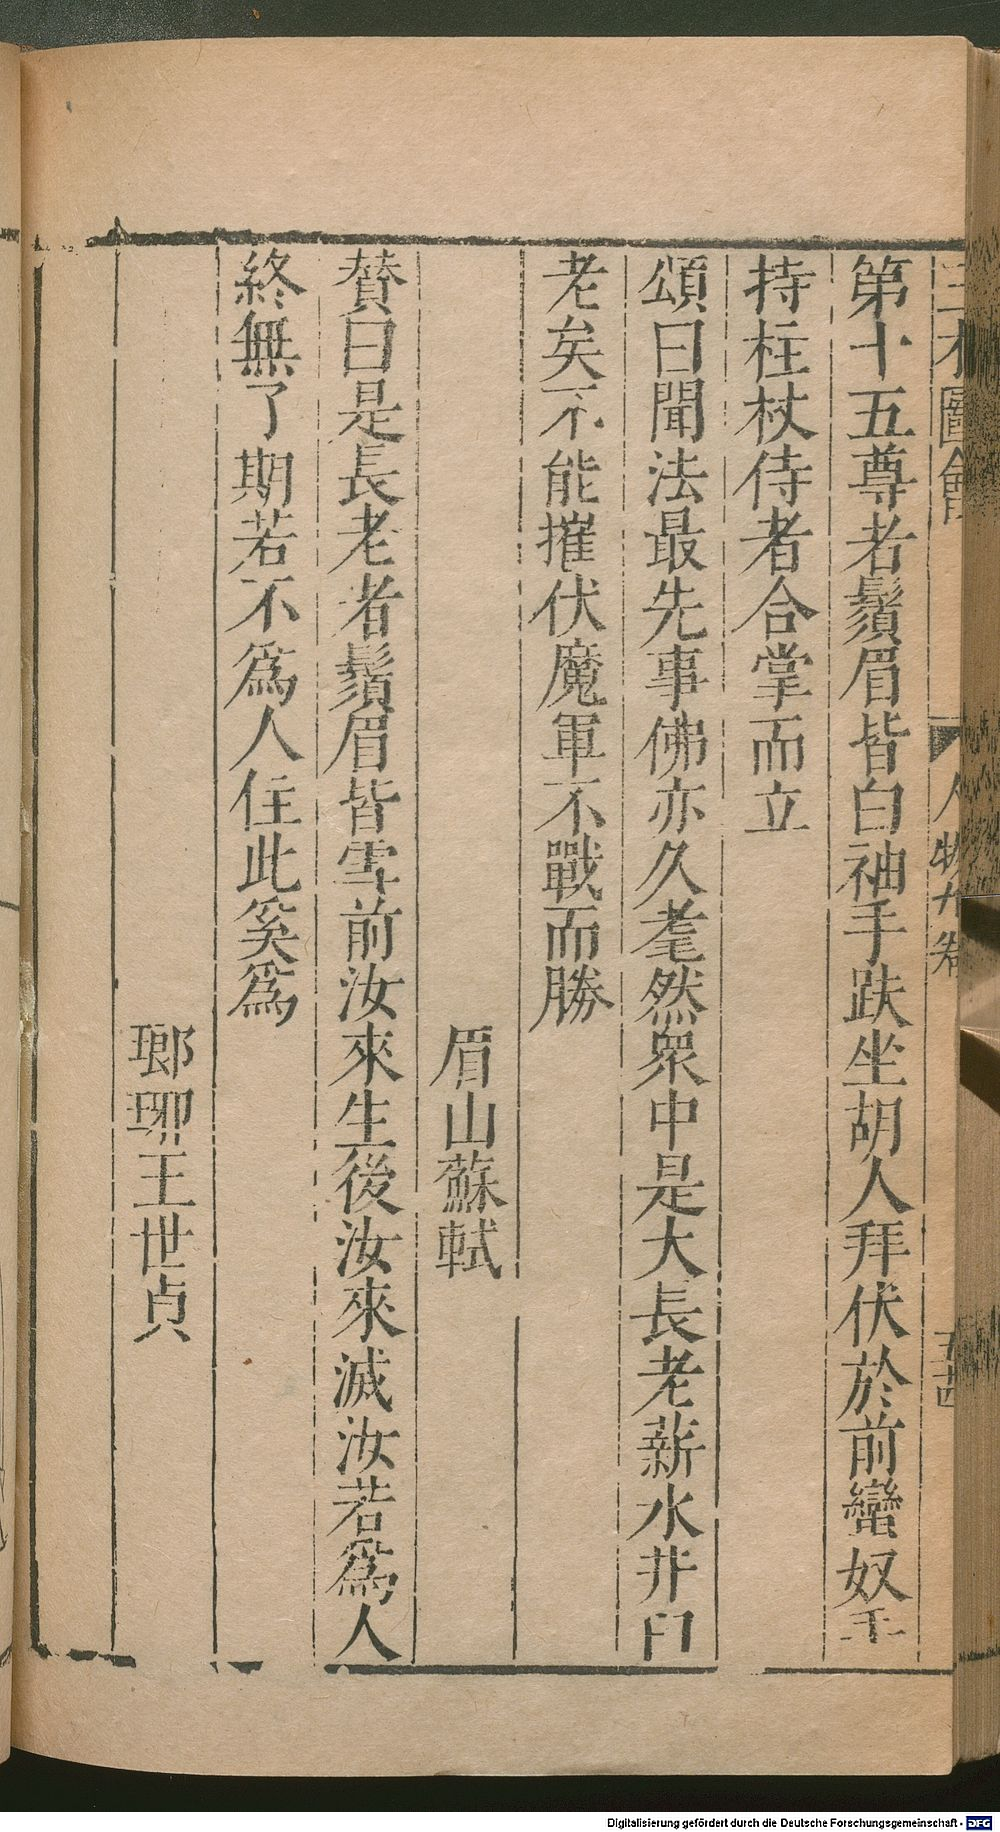 三才圖會 人物九卷
第十五尊者鬚眉皆白袖手趺坐胡人拜伏於前蠻奴手
持柱杖侍者合掌而立
頌曰聞法最先事佛亦久耄然衆中是大長老薪水井臼
老矣不能摧伏魔軍不戰而勝
眉山蘇軾
賛曰是長老者鬚眉皆雪前汝來生後汝來滅汝若爲人
終無了期若不爲人住此奚爲
瑯琊王世貞
Digitalisierung gefördert durch die Deutsche Forschungsgemeinschaft - DFG